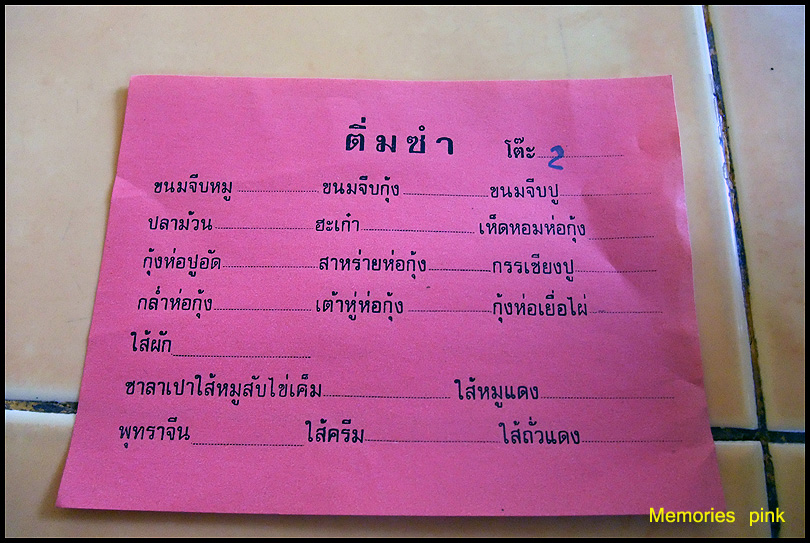 ติ่มซำ โต๊ะ 2
ขนมจีบหมู ขนมจีบกุ้ง ขนมจีบปู
ปลาม้วน ฮะเก๋า เห็ดหอมห่อกุ้ง
กุ้งห่อปูอัด สาหร่ายห่อกุ้ง กรรเชียงปู
กล่ำห่อกุ้ง เต้าหู่ห่อกุ้ง กุ้งห่อเยื่อไผ่
ไส้ผัก
ซาลาเปาไส้หมูสับไข่เค็ม ไส้หมูแดง
พุทราจีน ไส้ครีม ไส้ถั่วแดง
Memories pink